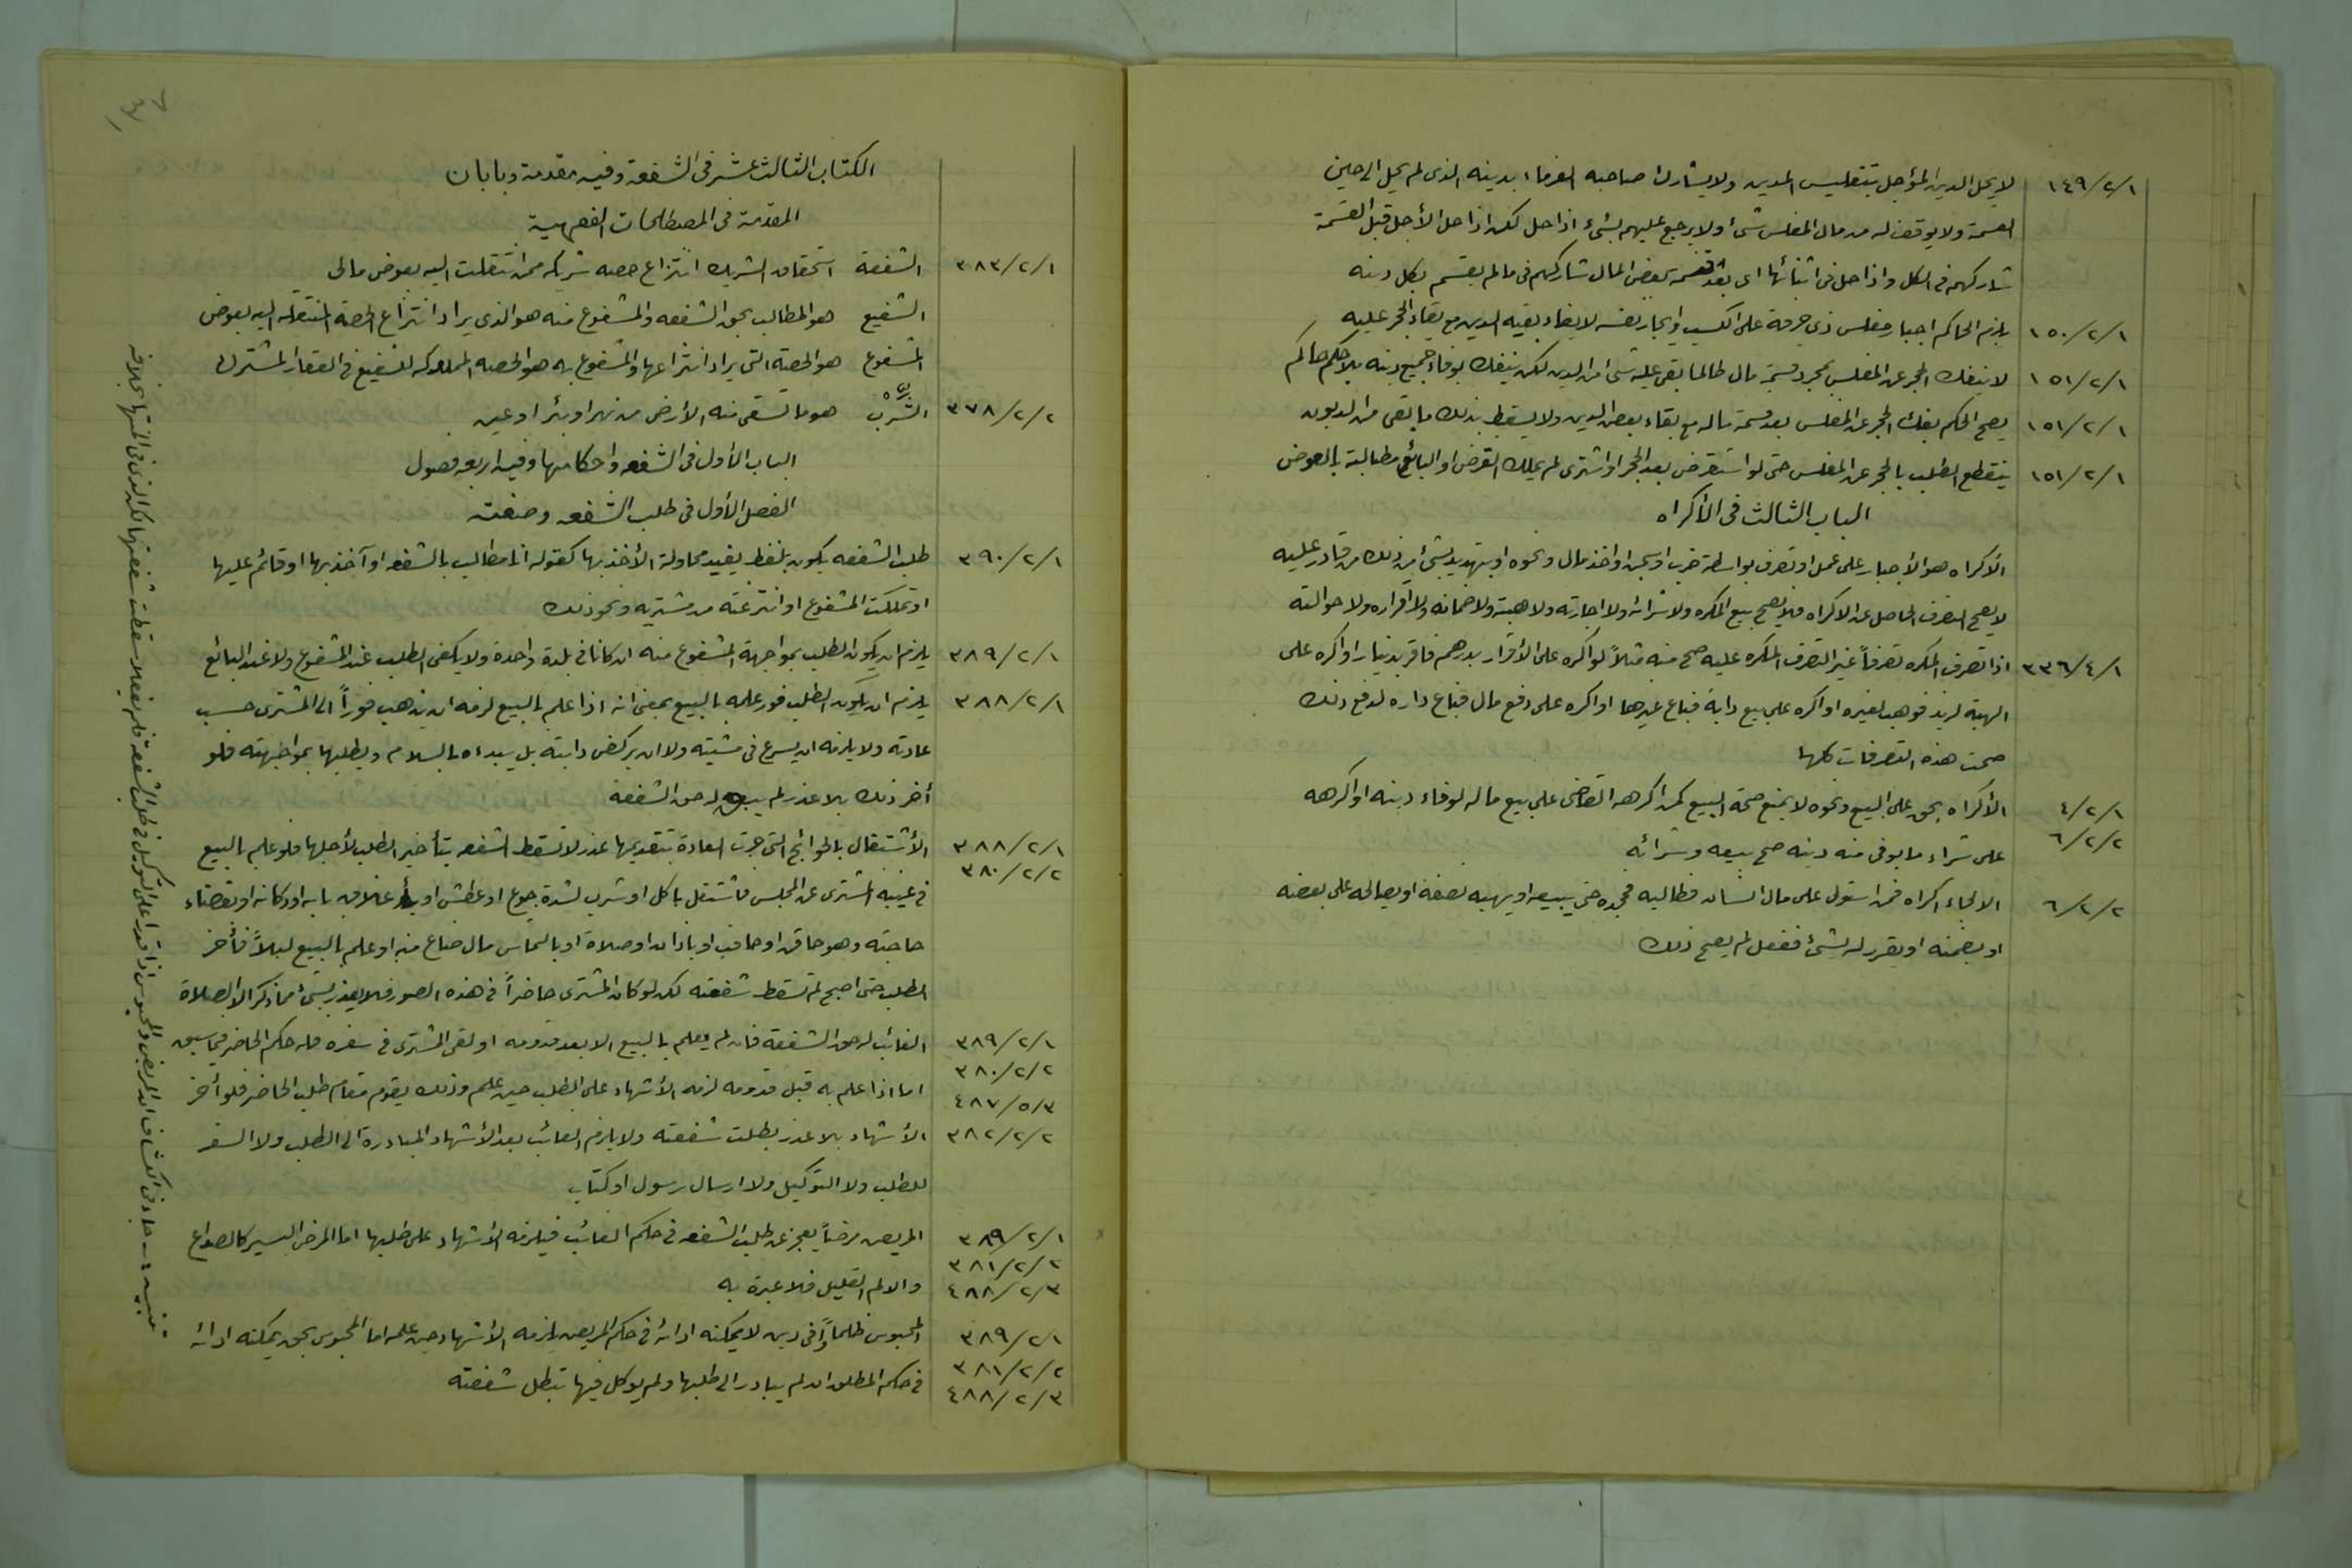 ١٤٩/٢/١ لا يحل الدين المؤجل بتفليس المدين ولا يشارك صاحبه الغرماء بدينه الذي لم يحل الى حين
القسمة ولا يوقف له من مال المفلس شئ ولا يرجع عليهم بشئ اذا حل لكن اذا حل الأجل قبل القسمة
شاركهم في الكل واذا حل في اثنائها اي بعد قسمة بعض المال شاركهم في ما لم يقسم بكل دينه
١٥٠/٢/١ يلزم الحاكم اجبار مفلس ذي حرفة على الكسب وايجار نفسه لايفاء بقية الدين مع بقاء الحجر عليه
١٥١/٢/١ لا ينفك الحجر عن المفلس بمجرد قسمة مال طالما بقي عليه شئ من الدين لكن ينفك بوفاء جميع دينه بلا حكم حاكم
١٥١/٢/١ يصح الحكم بفك الحجر عن المفلس بعد قسمة ماله مع بقاء بعض الدين ولا يسقط بذلك ما بقي من الديون
١٥١/٢/١ ينقطع الطلب بالحجر عن المفلس حتى لو استقرض بعد الحجر او اشترى لم يملك المقرض او البائع مطالبة بالعوض
الباب الثالث في الأكراه
الأكراه هو الأجبار على عمل او تصرف بواسطة ضرب او سجن او اخذ مال ونحوه او بتهديد بشئ من ذلك من قادر عليه
لا يصح التصرف الحاصل عن الاكراه فلا يصح بيع المكره ولا شرائه ولا اجارته ولا هبته ولا ضمانه ولا اقراره ولا حوالته
٣٣٦/٤/١ اذا تصرف المكره تصرفاً غير التصرف المكره عليه صح منه مثلاً لو اكره على الأقرار بدرهم فاقر بدينار او اكره على
الهبة لزيد فوهب لغيره او اكره على بيع دابة فباع غيرها او اكره على دفع مال فباع داره لدفع ذلك
صحت هذه التصرفات كلها
٤/٢/١ الأكراه بحق على البيع ونحوه لا يمنع صحة البيع كمن اكرهه القاضي على بيع ماله لوفاء دينه او اكرهه
٦/٢/٢ على شراء ما يوفي منه دينه صح بيعه وشرائه
٦/٢/٢ الالجاء اكراه فمن استولى على مال انسان فطالبه فجحده حتى يبيعه او يهبه نصفه او يصالحه على بعضه
او يضمنه او يقرر له بشئ ففعل لم يصح ذلك
٧٣
الكتاب الثالث عشر في الشفعة وفيه مقدمة وبابان
المقدمة في المصطلحات الفقهية
٣٨٣/٢/١ الشفعة استحقاق الشريك انتزاع حصة شريكه ممن انتقلت اليه بعوض مالي
الشفيع هو المطالب بحق الشفعه والمشفوع منه هو الذي يراد انتزاع الحصة المنتقلة اليه بعوض
المشفوع هو الحصة التي يراد انتزاعها والمشفوع به هو الحصه المملوكه للشفيع في العقار المشترك
٣٧٨/٢/٢ الشِّرْبُ هو ما تسقى منه الأرض من نهر او بئر او عين
الباب الأول في الشفعه واحكامها وفيه اربعة فصول
الفصل الأول في طلب الشفعه وصفته
٣٩٠/٢/١ طلب الشفعه يكون بلفظ يفيد محاولة الأخذ بها كقوله انا مطالب بالشفعه او آخذ بها او قائم عليها
او تملكت المشفوع او انتزعته من مشتريه ونحو ذلك
٣٨٩/٢/١ يلزم ان يكون الطلب بمواجهة المشفوع منه ان كانا في بلدة واحدة ولا يكفي الطلب عند المشفوع ولا عند البائع
٣٨٨/٢/١ يلزم ان يكون الطلب فور علمه بالبيع بمعنى انه اذا علم بالبيع لزمه ان يذهب فوراً الى المشتري حسب
عادته ولا يلزمه ان يسرع في مشيته ولا ان يركض دابته بل يبدءه بالسلام ويطلبها بمواجهته فلو
أخر ذلك بلا عذر لم يبق له حق الشفعه
٣٨٨/٢/١ الأشتغال بالحوائج التي جرت العادة بتقديمها عذر لا تسقط الشفعه بتأخير الطلب لأجلها فلو علم بالبيع
٣٨٠/٢/٢ في غيبة المشتري عن المجلس فاشتغل باكل او شرب لشدة جوع او عطش او بأغلاق بابه او دكانه او بقضاء
حاجته وهو حاقن او حاقب او باذان او صلاة او بالتماس مال ضاع منه او علم بالبيع ليلاً فأخر
الطلب حتى اصبح لم تسقط شفعته لكن لو كان المشتري حاضراً في هذه الصور فلا يعذر بشئ مما ذكر الا بالصلاة
٣٨٩/٢/١ الغائب له حق الشفعة فان لم يعلم بالبيع الا بعد قدومه او لقي المشتري في سفره فله حكم الحاضر فيما سبق
٣٨٠/٢/٢
٤٨٧/٥/٣ اما اذا علم به قبل قدومه لزمه الأشهاد على الطلب حين علم وذلك يقوم مقام طلب الحاضر فلو أخر
٣٨٢/٢/٢ الأشهاد بلا عذر بطلت شفعته ولا يلزم الغائب بعد الأشهاد المبادرة الى الطلب ولا السفر
للطلب ولا التوكيل ولا ارسال رسول او كتاب
٣٨٩/٢/١ المريض مرضاً يعجز عن طلب الشفعه في حكم الغائب فيلزمه الأشهاد على طلبها اما المرض اليسير كالصداع
٣٨١/٢/٢
٤٨٨/٢/٣ والالم القليل فلا عبرة به
٣٨٩/٢/١ المحبوس ظلماً او في دين لا يمكنه ادائه في حكم المريض يلزمه الأشهاد حين علمه اما المحبوس بحق يمكنه ادائه
٣٨١/٢/٢
٤٨٨/٢/٣ في حكم المطلق ان لم يبادر الى طلبها ولم يوكل فيها تبطل شفعته
تنبيه :- جاء في الكشاف ان المريض والمحبوس اذا قدر على التوكيل في طلب الشفعة فلم يفعلا سقطت شفعتهما لكن الذي في المنتهى بخلافه